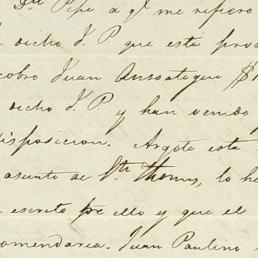 Dn Pepe a q! me refiero
dicho J. P que esta pro
cobro Juan Ansoategui $
dicho J. P y han venido
disposicion. Argote esta
asunto de Sth Thomas, lo h
escrito pr ello y que el
comendaria. Juan Paulino